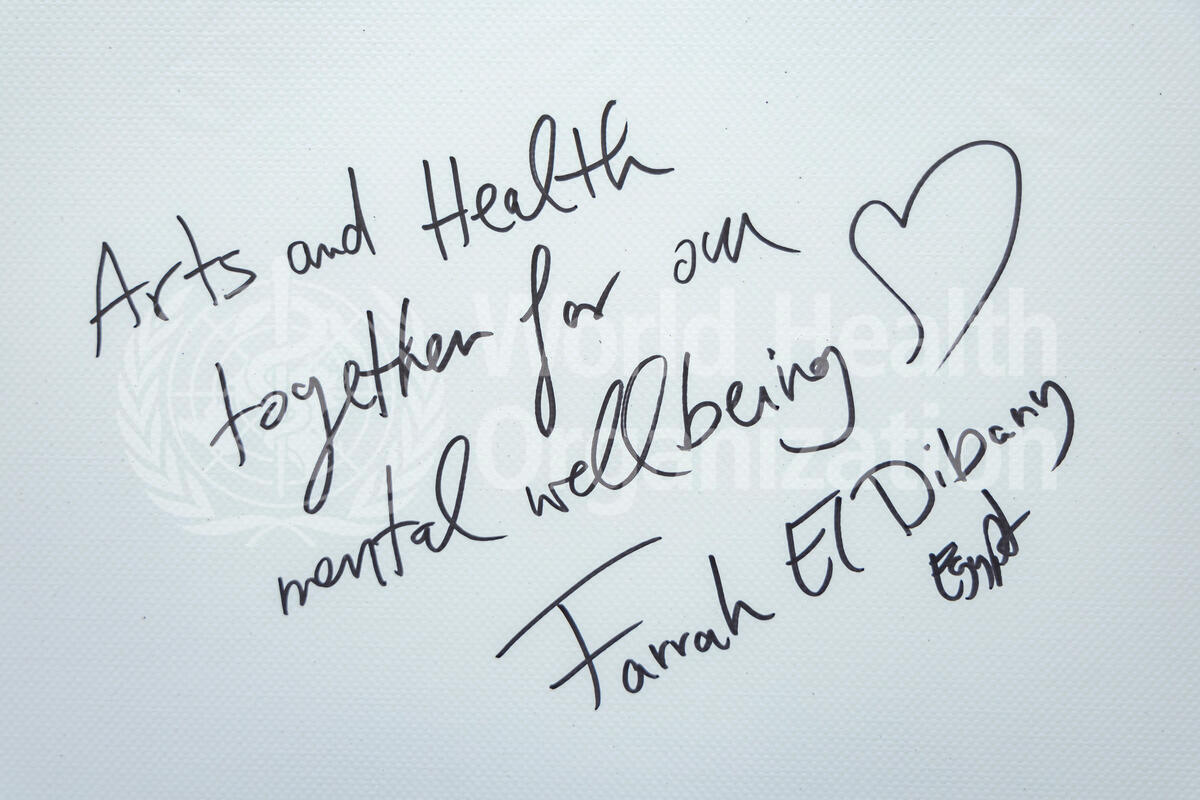 Arts and Health
together for our
mental wellbeing
Farrah El Dibany
Egypt
World Health
Organization